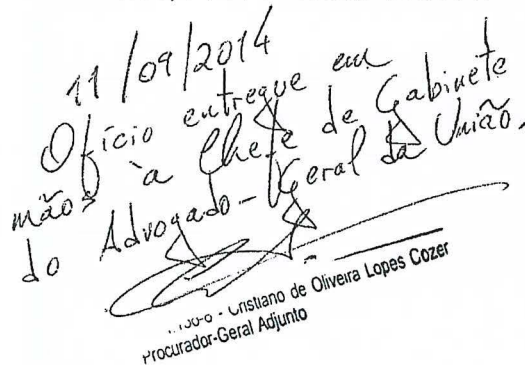 11/09/2014
Ofício entregue em
mãos à Chefe de Gabinete
do Advogado-Geral da União.
- Cristiano de Oliveira Lopes Cozer
Procurador-Geral Adjunto